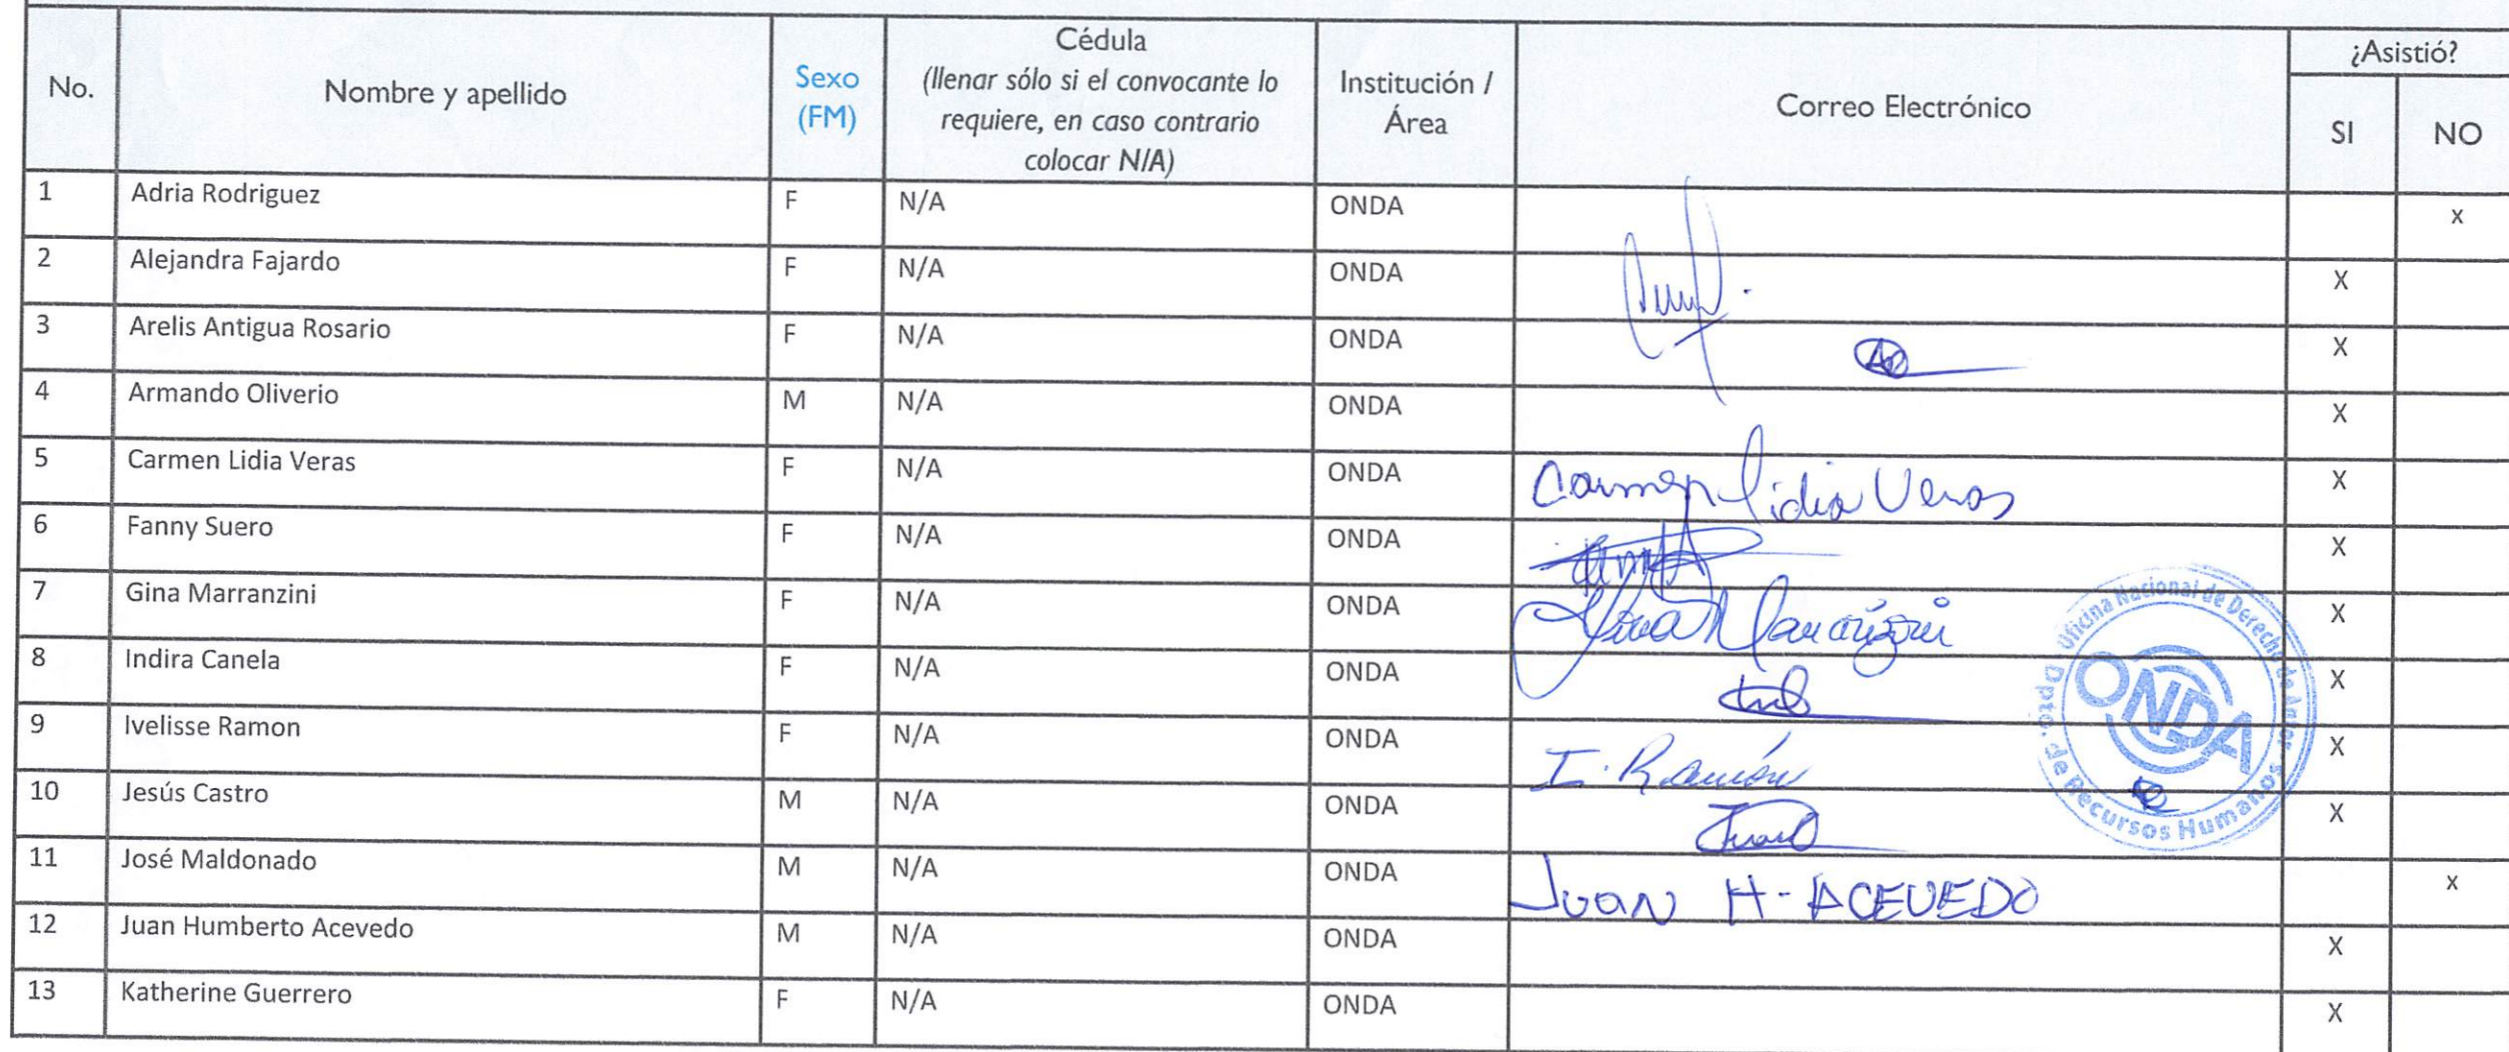 No. Nombre y apellido Sexo (FM) Cédula (llenar sólo si el convocante lo requiere, en caso contrario colocar N/A) Institución / Área Correo Electrónico ¿Asistió? SI NO
1 Adria Rodriguez F N/A ONDA x
2 Alejandra Fajardo F N/A ONDA X
3 Arelis Antigua Rosario F N/A ONDA X
4 Armando Oliverio M N/A ONDA X
5 Carmen Lidia Veras F N/A ONDA Carmen Lidia Veras X
6 Fanny Suero F N/A ONDA X
7 Gina Marranzini F N/A ONDA Gina Marranzini X
8 Indira Canela F N/A ONDA X
9 Ivelisse Ramon F N/A ONDA I. Ramón X
10 Jesús Castro M N/A ONDA X
11 José Maldonado M N/A ONDA JUAN H- ACEVEDO x
12 Juan Humberto Acevedo M N/A ONDA X
13 Katherine Guerrero F N/A ONDA X
Oficina Nacional de Derecho de Autor
ONDA
Dpto. de Recursos Humanos